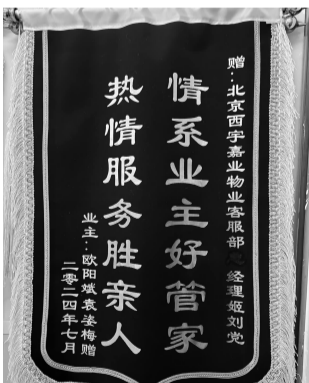 赠：北京西宇嘉业物业客服部 经理姬刘党
情系业主好管家
热情服务胜亲人
业主：欧阳斌袁姿梅赠
二零二四年七月